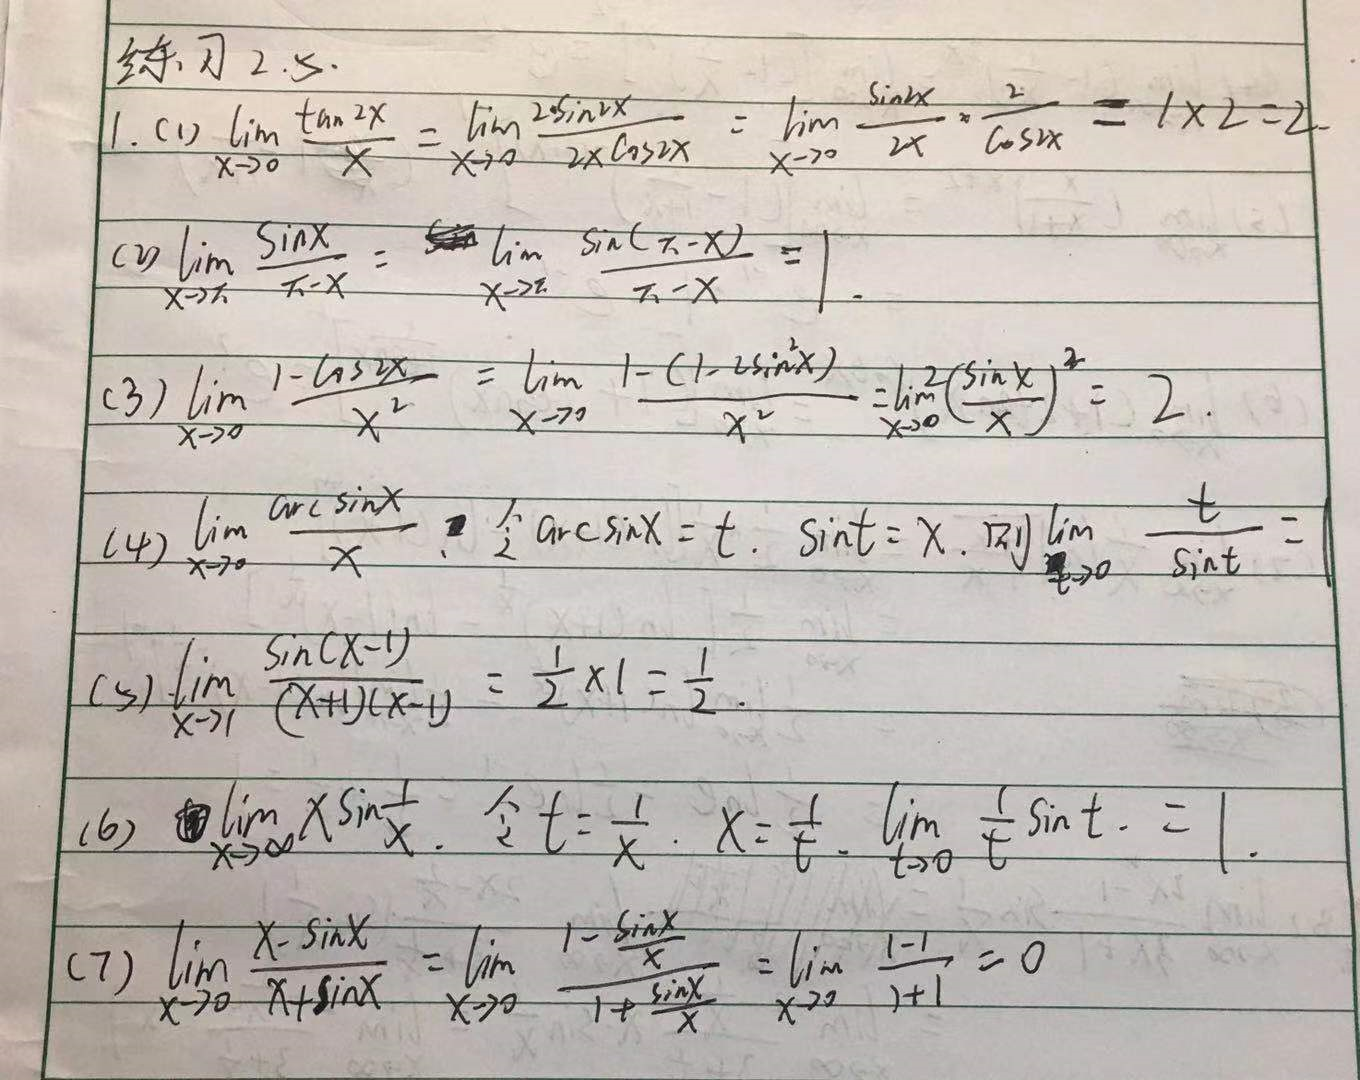 练习2.5.
1.(1) lim_{x→0} tan2x/x = lim_{x→0} 2·sin2x/(2x cos2x) = lim_{x→0} sin2x/2x · 2/cos2x = 1×2=2.
(2) lim_{x→π} sinx/(π-x) = lim_{x→π} sin(π-x)/(π-x) = 1.
(3) lim_{x→0} (1-cos2x)/x² = lim_{x→0} (1-(1-2sin²x))/x² = lim_{x→0} 2(sinx/x)² = 2.
(4) lim_{x→0} arcsinx/x. 令arcsinx=t. sint=x. 则lim_{t→0} t/sint = 1
(5) lim_{x→1} sin(x-1)/((x+1)(x-1)) = 1/2 ×1 = 1/2.
(6) lim_{x→∞} x sin 1/x. 令t=1/x. x=1/t. lim_{t→0} 1/t sint. = 1.
(7) lim_{x→0} (x-sinx)/(x+sinx) = lim_{x→0} (1-sinx/x)/(1+sinx/x) = lim_{x→0} (1-1)/(1+1) = 0